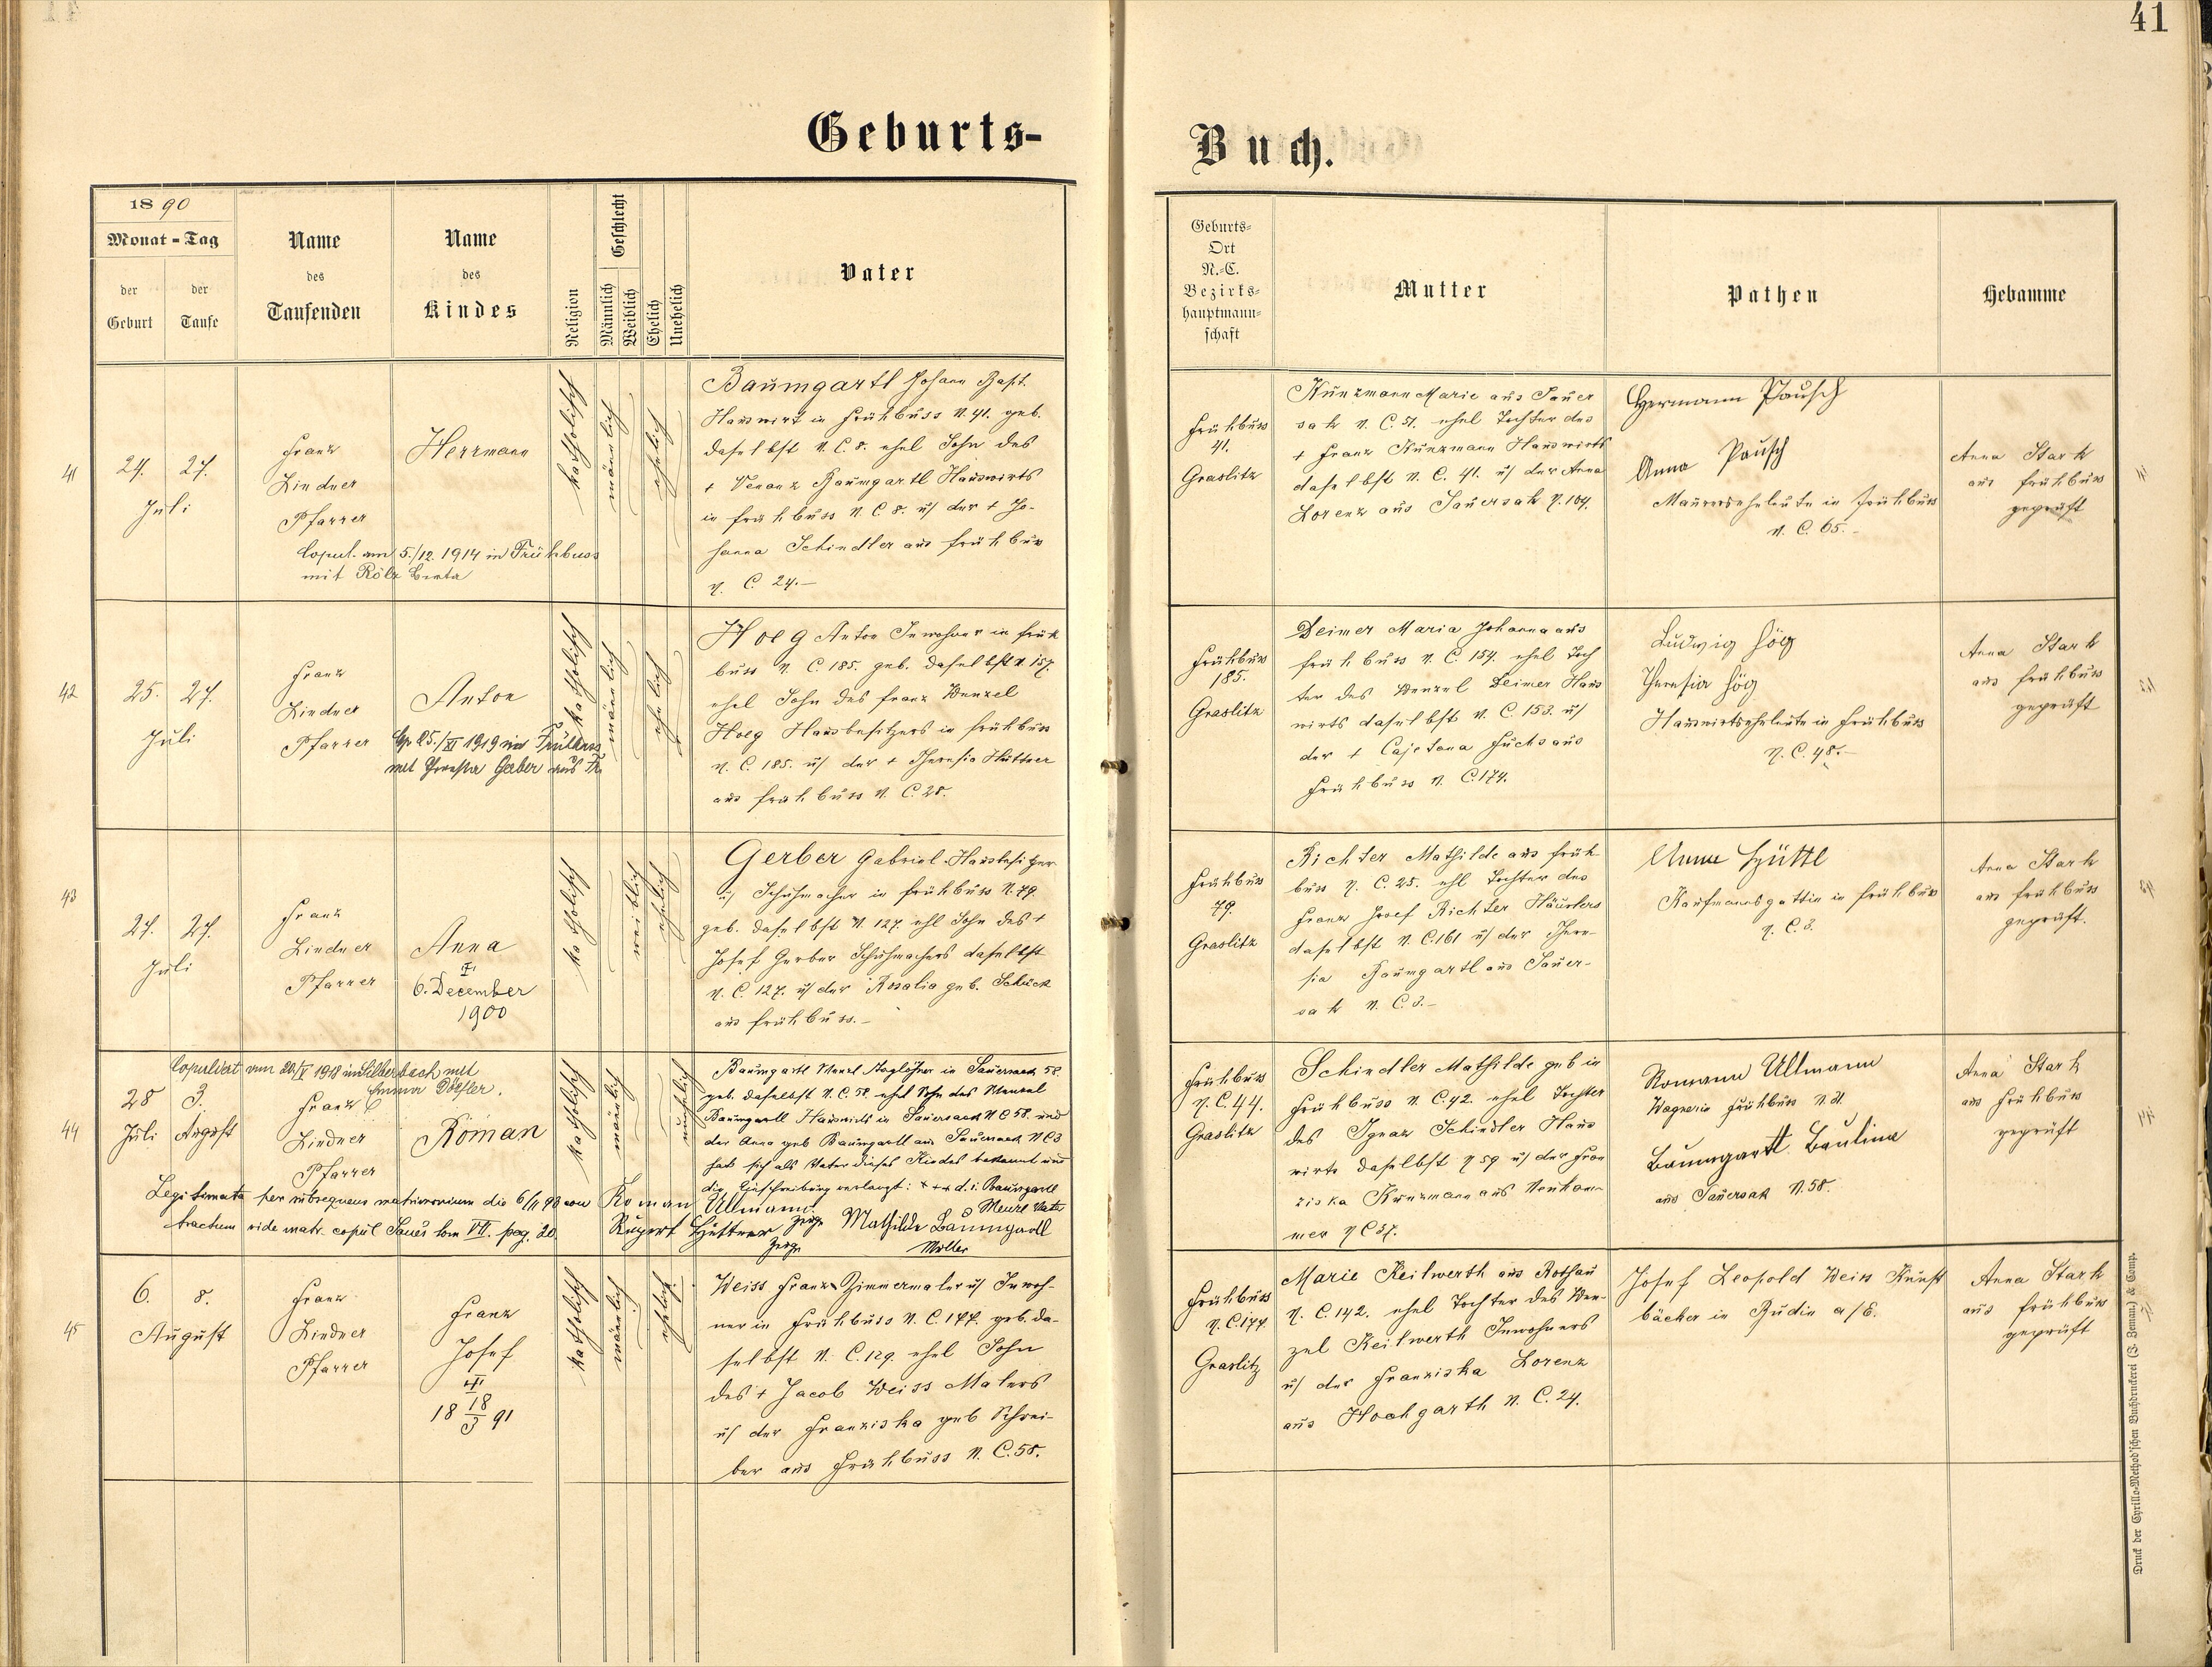 41
Geburts-
Buch.
1890
Monat-Tag
der Geburt
der Taufe
Name des Taufenden
Name des Kindes
Religion
Geschlecht
Männlich
Weiblich
Ehelich
Unehelich
Vater
Geburts-
Ort
N.-C.
Bezirks-
hauptmann-
schaft
Mutter
Pathen
Hebamme
41
24. 27.
Juli
Franz
Lindner
Pfarrer
Herrmann
Copul. am 5./12. 1914 in Frühbuss
mit Rölz Berta
katholisch
männlich
ehelich
Baumgartl Johann Bapt.
Hauswirt in Frühbuss N. 41. geb.
daselbst N. C. 8. ehel Sohn des
+ Venanz Baumgartl Hauswirts
in Frühbuss N. C. 8. u/ der + Jo-
hanna Schindler aus Frühbuss
N. C. 24.—
Frühbuss
41.
Graslitz
Kunzmann Marie aus Sauer
sak N. C. 51. ehel Tochter des
+ Franz Kunzmann Hauswirts
daselbst N. C. 41. u/ der Anna
Lorenz aus Sauersak N. 104.
Hermann Pausch
Anna Pausch
Maurerseheleute in Frühbuss
N. C. 65.-
Anna Stark
aus Frühbuss
geprüft
42
25. 27.
Juli
Franz
Lindner
Pfarrer
Anton
Cop. 25./XI 1919 in Frühbuss
mit Theresia Gerber aus Fr.
katholisch
männlich
ehelich
Hoeg Anton Inwohner in Früh
buss N. C. 185. geb. daselbst N. 157.
ehel Sohn des Franz Wenzel
Hoeg Hausbesitzers in Frühbuss
N. C. 185. u/ der + Theresia Hüttner
aus Frühbuss N. C. 28.
Frühbuss
185.
Graslitz
Deimer Maria Johanna aus
Frühbuss N. C. 154. ehel Toch
ter des Wenzel Deimer Haus
wirts daselbst N. C. 153. u/
der + Cajetana Fuchs aus
Frühbuss N. C. 174.
Ludwig Hög
Theresia Hög
Hauswirtseheleute in Frühbuss
N. C. 48.—
Anna Stark
aus Frühbuss
geprüft
43
27. 27.
Juli
Franz
Lindner
Pfarrer
Anna
†
6. December
1900
katholisch
weiblich
ehelich
Gerber Gabriel Hausbesitzer
u/ Schuhmacher in Frühbuss N. 79.
geb. daselbst N. 127. ehl Sohn des +
Josef Gerber Schuhmachers daselbst
N. C. 127. u/ der Rosalia geb. Schück
aus Frühbuss.—
Frühbuss
79.
Graslitz
Richter Mathilde aus Früh
buss N. C. 25. ehl Tochter des
Franz Josef Richter Häuslers
daselbst N. C. 161 u/ der There-
sia Baumgartl aus Sauer-
sak N. C. 3.-
Anna Hüttl
Kaufmannsgattin in Frühbuss
N. C. 3.
Anna Stark
aus Frühbuss
geprüft.
44
Copuliert am 20/V 1918 in Silberbach mit
Emma Dörfler.
28 3.
Juli August
Franz
Lindner
Pfarrer
Roman
katholisch
männlich
unehelich
Baumgartl Wenzl Taglöhner in Sauersack 58.
geb. daselbst N. C. 58. ehel Sohn des Wenzel
Baumgartl Hauswirts in Sauersack N C 58. und
der Anna geb Baumgartl aus Sauersack N C 3
hat sich als Vater dieses Kindes bekannt und
die Einschreibung verlangt: +++ d. i. Baumgartl
Wenzl Vater
Legitimata per subsequens matrimonium die 6/11 93 con
tractum vide matr. copul Sauers tom VII. pag. 20.
Roman Ullmann Zeuge
Rupert Hüttner
Zeuge
Mathilde Baumgartl
Mutter
Frühbuss
N. C. 44.
Graslitz
Schindler Mathilde geb in
Frühbuss N. C. 42. ehel Tochter
des Ignaz Schindler Haus
wirts daselbst N 59 u/ der Fran
ziska Kunzmann aus Neuham-
mer N C 37.
Romann Ullmann
Wagner in Frühbuss N. 21.
Baumgartl Baulina
aus Sauersak N. 58.
Anna Stark
aus Frühbuss
geprüft
45
6. 8.
August
Franz
Lindner
Pfarrer
Franz
Josef
†
18 18/3 91
katholisch
männlich
ehelich
Weiss Franz Zimmermaler u/ Inwoh-
ner in Frühbuss N. C. 177. geb. da-
selbst N. C. 129. ehel Sohn
des + Jacob Weiss Malers
u/ der Franziska geb Schrei-
ber aus Frühbuss N. C. 58.
Frühbuss
N. C. 177.
Graslitz
Marie Keilwerth aus Rothau
N. C. 142. ehel Tochter des Wen-
zel Keilwerth Inwohners
u/ der Franziska Lorenz
aus Hochgarth N. C. 24.
Josef Leopold Weiss Kunst
bäcker in Budin a/E.
Anna Stark
aus Frühbuss
geprüft
Druck der Cyrillo-Method'schen Buchdruckerei (J. Zeman) & Comp.